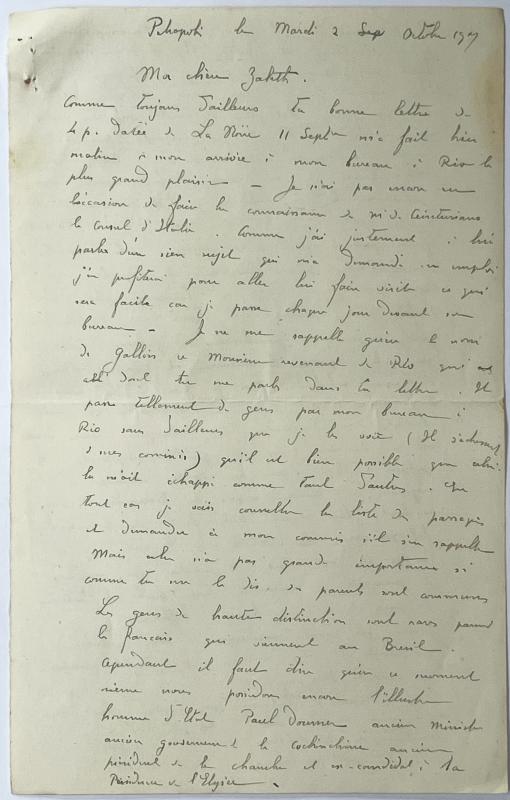 Petropolis le Mardi 2 Sep Octobre 1907
Ma chère
Comme toujours d'ailleurs ta bonne lettre de
4 p. datée de La 11 Septbre m'a fait hier
matin à mon arrivée à mon bureau à Rio le
plus grand plaisir – Je n'ai pas encore eu
l'occasion de faire la connaissance de Mr de
le Consul d'Italie. Comme j'ai justement à lui
parler d'un sien sujet qui m'a demandé un emploi
j'en profiterai pour aller lui faire visite ce qui
sera facile car je passe chaque jour devant son
bureau – Je ne me rappelle guère le nom
de Gallois ce Monsieur revenant de Rio qui
dont tu me parles dans ta lettre. Il
passe tellement de gens par mon bureau à
Rio sans d'ailleurs que je les voie (Ils s'adressent
à mes commis) qu'il est bien possible que celui-
là m'ait échappé comme tant d'autres. En
tout cas je vais consulter la liste des passagers
et demander à mon commis s'il s'en rappelle
Mais cela n'a pas grande importance si
comme tu me le dis, ses parents sont communs
Les gens de haute distinction sont rares parmi
les français qui viennent au Brésil.
Cependant il faut dire qu'en ce moment
même nous possédons encore l'illustre
homme d'Etat Paul Doumer ancien Ministre
ancien gouverneur de la Cochinchine ancien
président de la chambre et ex-candidat à la
Présidence de l'Elysée.